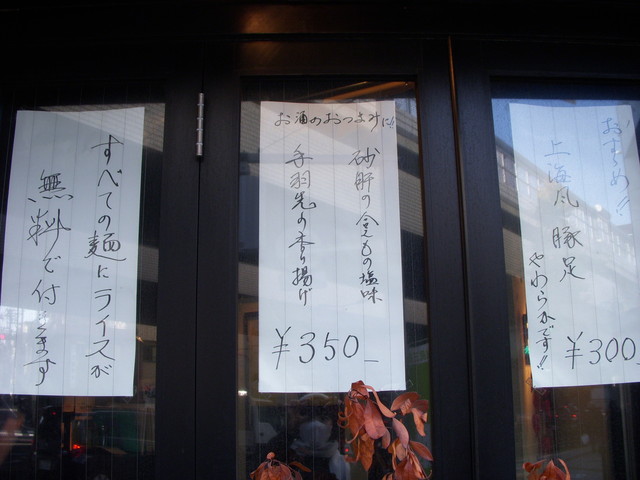 すべての麺にライスが
無料で付きます
お酒のおつまみに!!
砂肝の冷もの塩味
手羽先の香り揚げ
¥350_
おすすめ!!
上海風 豚足
やわらかです!!
¥300